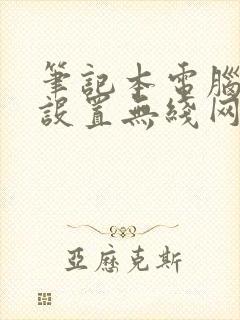 筆記本電腦
設置無綫网
亞歷克斯